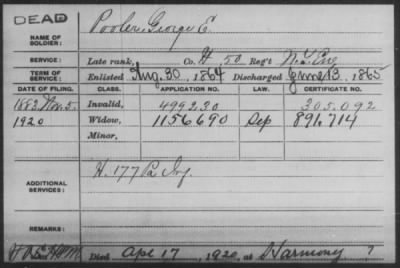 DEAD
NAME OF SOLDIER: Pooler, George E.
SERVICE: Late rank, Co. H, 50 Reg't N.Y. Eng
TERM OF SERVICE: Enlisted Aug. 30, 1864 Discharged June 13, 1865
DATE OF FILING. CLASS. APPLICATION NO. LAW. CERTIFICATE NO.
1883 Nov. 5. Invalid, 499230 305.092
1920 Widow, 1156690 Sep 891,714
Minor,
ADDITIONAL SERVICES: H. 177 Pa Inf.
REMARKS:
Died Apr 17, 1920, at Harmony ?